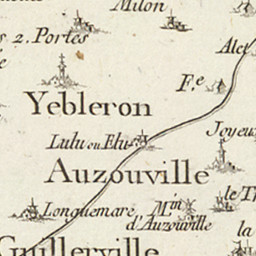 Milon
2. Portes
Alet
F.e
Yebleron
Joyeu
Lulu ou Elu
Auzouville
le T
Longuemare
M.in
d'Auzouville
la
Guillerville